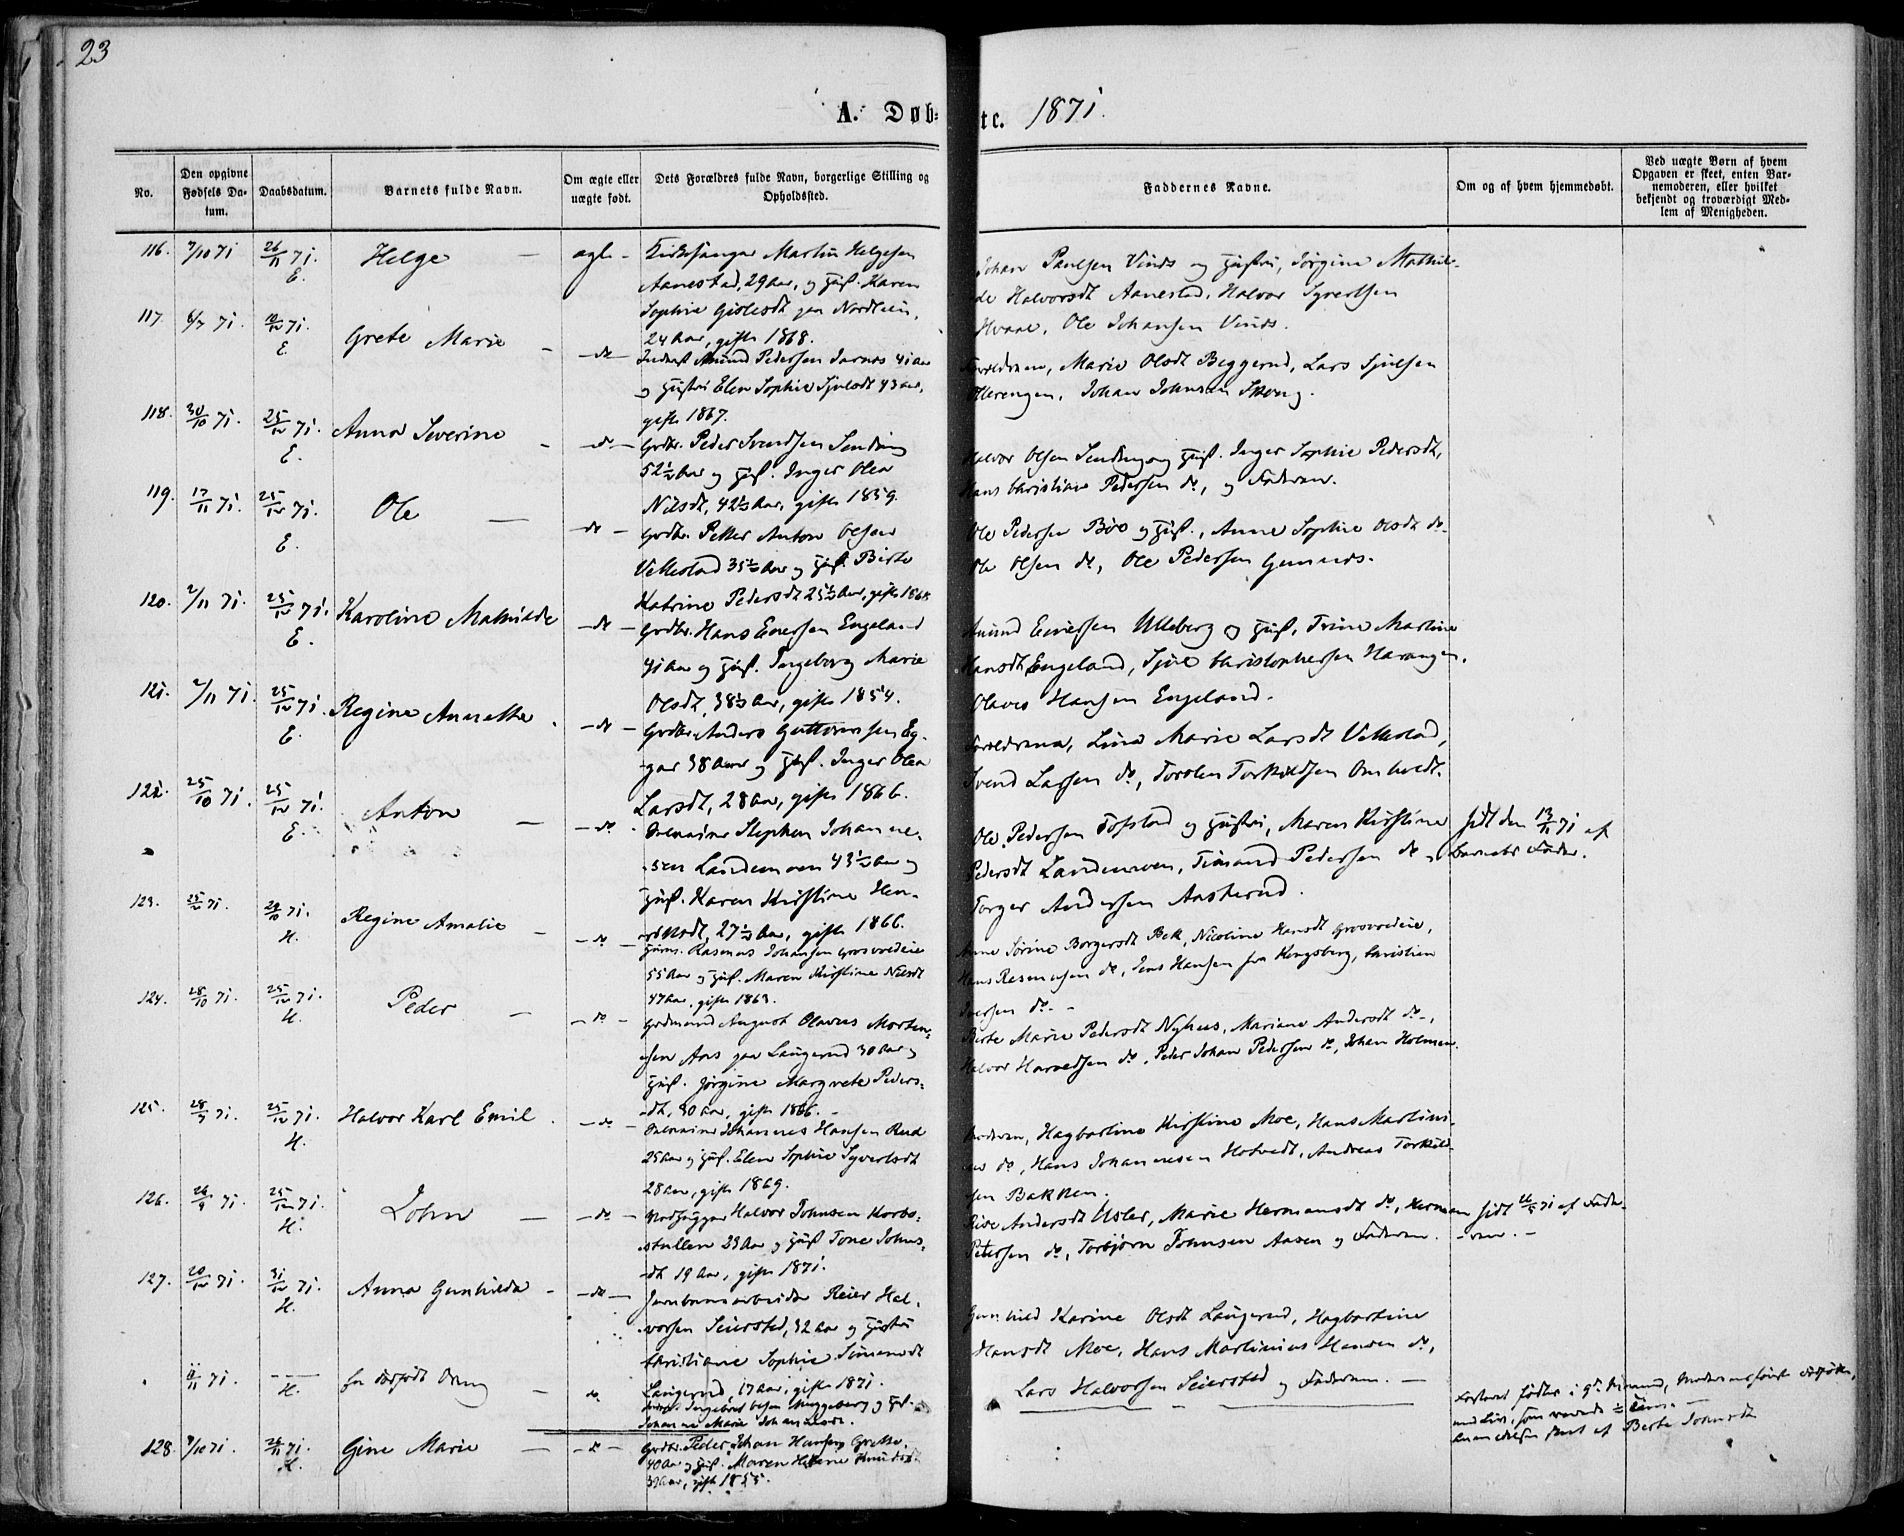 23
A. Døbte. 1871.
No.
Den opgivne Fødsels Datum.
Daabsdatum.
Barnets fulde Navn.
Om ægte eller uægte født.
Dets Forældres fulde Navn, borgerlige Stilling og Opholdssted.
Faddernes Navne.
Om og af hvem hjemmedøbt.
Ved uægte Børn af hvem Opgaven er skeet, enten Barnemoderen, eller hvilket bekjendt og troværdigt Medlem af Menigheden.
116. 7/10 71 26/11 71. E. Helge — ægte - Kirkesanger Martin Helgesen
Aanestad, 29 Aar, og Hust. Karen
Sophie Gislesdt paa Nordteien,
24 Aar, gifte 1868.
Johan Paulsen Vinds og Hustru, Jørgine Mathil-
de Halvorsdt Aanestad, Halvor Syvertsen
Hvaal, Ole Johansen Vinds.
117. 6/7 71. 10/12 71. E. Grete Marie — do — Inderst Amund Pedersen Jarnæs 41 Aar
og Hustru Elen Sophie Sjulsdt 43 Aar,
gifte 1867.
Forældrene, Marie Olsdt Beggerud, Lars Sjulsen
Johan Johnsen
118. 30/10 71. 25/12 71. E. Anna Severine — do — Grdbr. Peder Svendsen Sending
52½ Aar og Hust. Inger Olea
Nilsdt, 42½ Aar, gifte 1859.
Halvor Olsen Sending og Hust. Inger Sophie Pedersdt,
Hans Christian Pedersen do, og Faderen.
119. 17/11 71. 25/12 71. E. Ole — do — Grdbr. Petter Anton Olsen
Vellestad 35½ Aar og Hust. Birte
Katrine Pedersdt 25½ Aar, gifte 1868
Ole Pedersen Böe og Hust., Anne Sophie Olsdt do
Ole Olsen do, Ole Pedersen Gunnes.
120. 2/11 71. 25/12 71. E. Karoline Mathilde — do — Grdbr. Hans Enersen Engeland
41 Aar og Hust. Ingeborg Marie
Olsdt, 38½ Aar, gifte 1854.
Amund Enersen Ulleberg og Hust. Trine Martine
Hansdt Engeland, Sjul Christophersen Harangen.
Olaves Hansen Engeland.
121. 2/11 71. 25/12 71. E. Regine Annette. — do — Grdbr. Anders Guttormsen Eg-
gar 38 Aar og Hust. Inger Olea
Larsdt, 28 Aar, gifte 1866.
Forældrene, Lina Marie Larsdt Vellestad,
Svend Larsen do, Torsten Torkildsen Omholdt.
122. 25/10 71. 25/12 71. E. Anton — do. Stephen Johanne-
sen Landemoen 43½ Aar og
Hust. Karen Kirstine Hen-
riksdt, 27½ Aar, gifte 1866.
Ole Pedersen Tofstad og Hustru, Maren Kirstine
Pedersdt Landemoen, Pedersen do,
Torger Andersen Aaskerud.
hjdt den 13/11 71 af
Barnets Fader.
123. 71. 29/10 71. H. Regine Amalie — do — Husm. Rasmus Johansen Grosvoldeie
55 Aar og Hust. Maren Kirstine Nilsdt
47 Aar, gifte 1863.
Anne Sørine Borgersdt Bek, Nicoline Hansdt Grosvoldeie,
Hans Rasmusen do, Jens Hansen fra Kongsberg, Christian
Iversen do. -
124. 28/10 71. 25/12 71. H. Peder — do — Grdmand August Olavus Morten-
sen Aas paa Laugerud 30 Aar og
Hust. Jørgine Margrete Peders-
dt, 30 Aar, gifte 1866. -
Birte Marie Pedersdt Nyhus, Mariane Andersdt do.,
Halvor Harvedsen do, Peder Johan Pedersen do, Johan Holmen.
125. 28/9 71. 25/12 71. H. Halvor Karl Emil. — do — Johannes Hansen Rud
25 Aar og Hust. Elen Sophie Syvertsdt
28 Aar, gifte 1869.
Moderen, Hagbartine Kirstine Moe, Hans Martini-
us do, Hans Johannesen Hotvedt, Andreas Torkild-
sen Bakken.
126. 26/9 71. 25/12 71. H. John — do — Halvor Johnsen Korbs-
stullen 23 Aar og Hust Tone Johns-
dt 19 Aar, gifte 1871.
Andersdt Usler, Marie Hermansdt do, Herman
Petersen do, Torbjørn Johnsen Aasen og Faderen.
hjdt 71 af Fade-
-ren. -
127. 20/12 71. 31/12 71. H. Anna Gunhilda — do — Jernbanearbeider Reier Hal-
vorsen Seierstad, 32 Aar og Hustru
Christiane Sophie Simensdt
Laugerud, 17 Aar, gifte 1871.
Gunhild Karine Olsdt Laugerud, Hagbartine
Hansdt Moe, Hans Martinius Hansen do,
Lars Halvorsen Seierstad og Faderen. —
11/11 71. — H. en dødfødt Dreng — do Ingebret Olsen Muggeberg og Hust.
Johanne Marie Johannesdt.
128. 7/10 71. 26/11 71. H. Gine Marie — do — Grdbr. Peder Johan Hansen Grette
40 Aar og Hust. Maren Helene Knudsdt
39 Aar, gifte 1855.